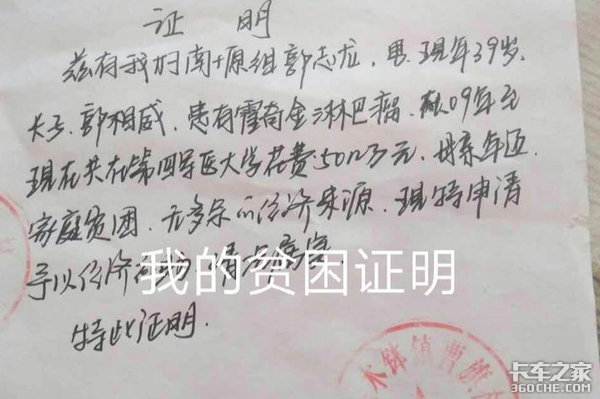 证 明
兹有我村南十原组郭志龙，男，现年39岁，
长子，郭相威，患有霍奇金淋巴瘤，从09年至
现在共在第四军医大学花费:50几万元，母亲年迈，
家庭贫困，无多余的经济来源，现特申请
予以经济 情况属实
我的贫困证明
特此证明.
术钵镇曹
卡车之家
360che.com